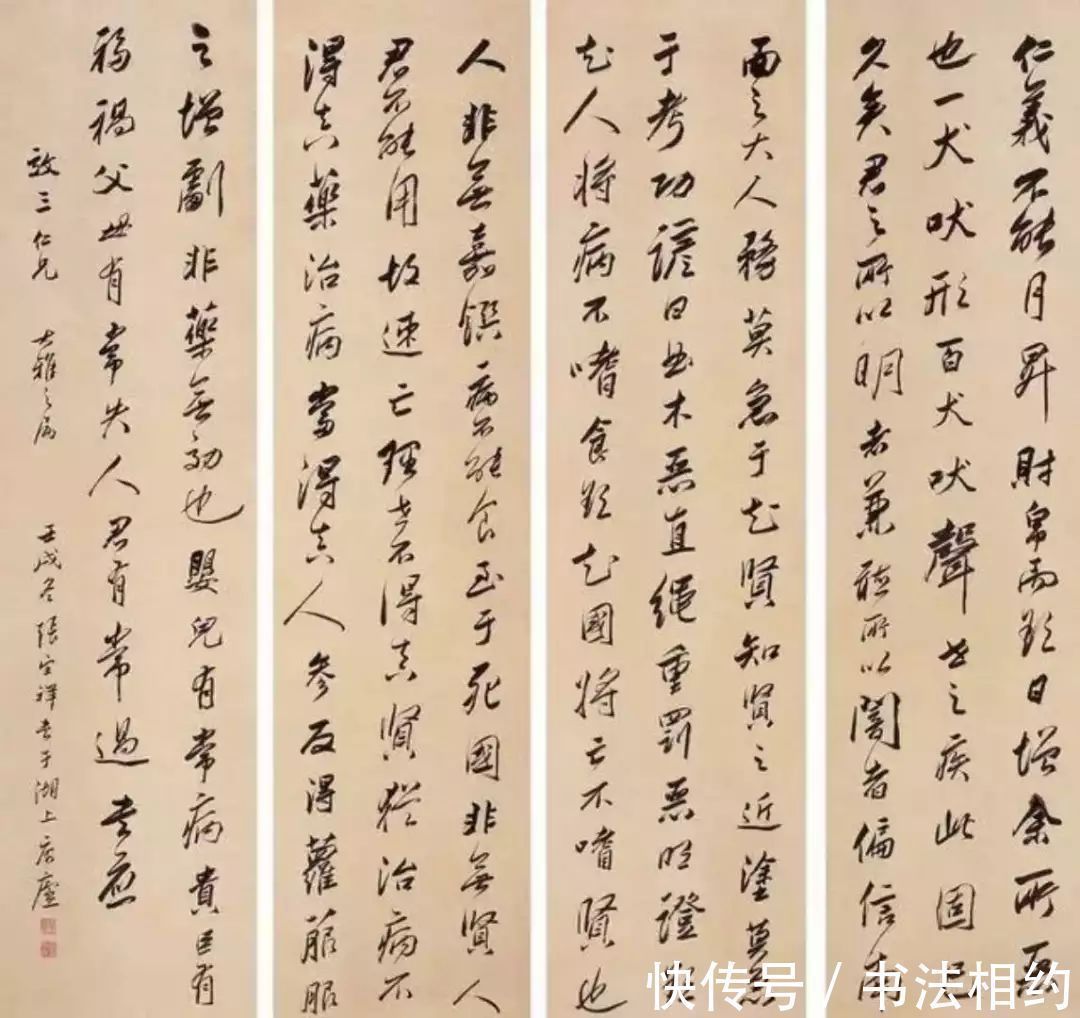 仁義不能月昇財帛而欲日增余所惡
也一犬吠形百犬吠聲世之疾此固已
久矣君之所以明者兼聽所以闇者偏信南
面之大人務莫急于知賢知賢之近塗莫急
于考功諺曰曲木惡直繩重罰惡明證欲
知人將病不嗜食欲知國將亡不嗜賢也
人非無嘉饌病不能食至于死國非無賢人
君不能用故速亡理世不得真賢猶治病不
得真藥治病當得真人參反得蘿菔服
之增劇非藥無効也嬰兒有常病貴臣有
禍父母有常失人君有常過書應
效三仁兄 大雅之屬 壬戌冬張宗祥書于湖上寓廬
快传号 / 书法相约